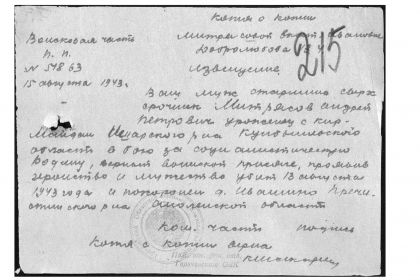 Копия с копии
Войсковая часть
П. П.
№ 51863
15 августа 1943г.
Митрясовой Ивановне
Добролюбова
215
Извещение
Ваш муж старшина сверх
срочник Митрясов Андрей
Петрович уроженец с Кир-
Майдан Исарского р-на Куйбышевской
области в бою за социалистическую
Родину, верный воинской присяге, проявив
геройство и мужество убит 13 августа
1943 года и похоронен д. Ивашино Пречи-
стинского р-на Смоленской области
Ком. часть подпись
Копия с копии верна